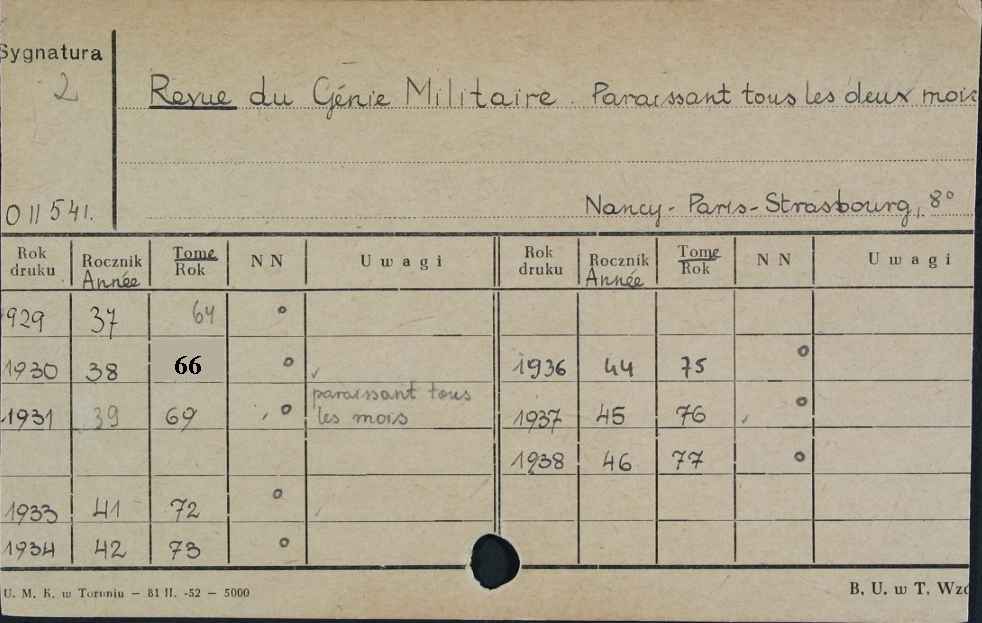 Sygnatura
2
Revue du Génie Militaire. Paraissant tous les deux mois
011541.
Nancy-Paris-Strasbourg, 8°
Rok druku Rocznik Année Tome Rok NN Uwagi Rok druku Rocznik Année Tome Rok NN Uwagi
929 37 64 o
1930 38 66 o 1936 44 75 o
paraissant tous
1931 39 69 o les mois 1937 45 76 o
1938 46 77 o
1933 41 72 o
1934 42 73 o
U. M. K. w Toruniu — 81 II. -52 — 5000 B. U. w T. Wzó